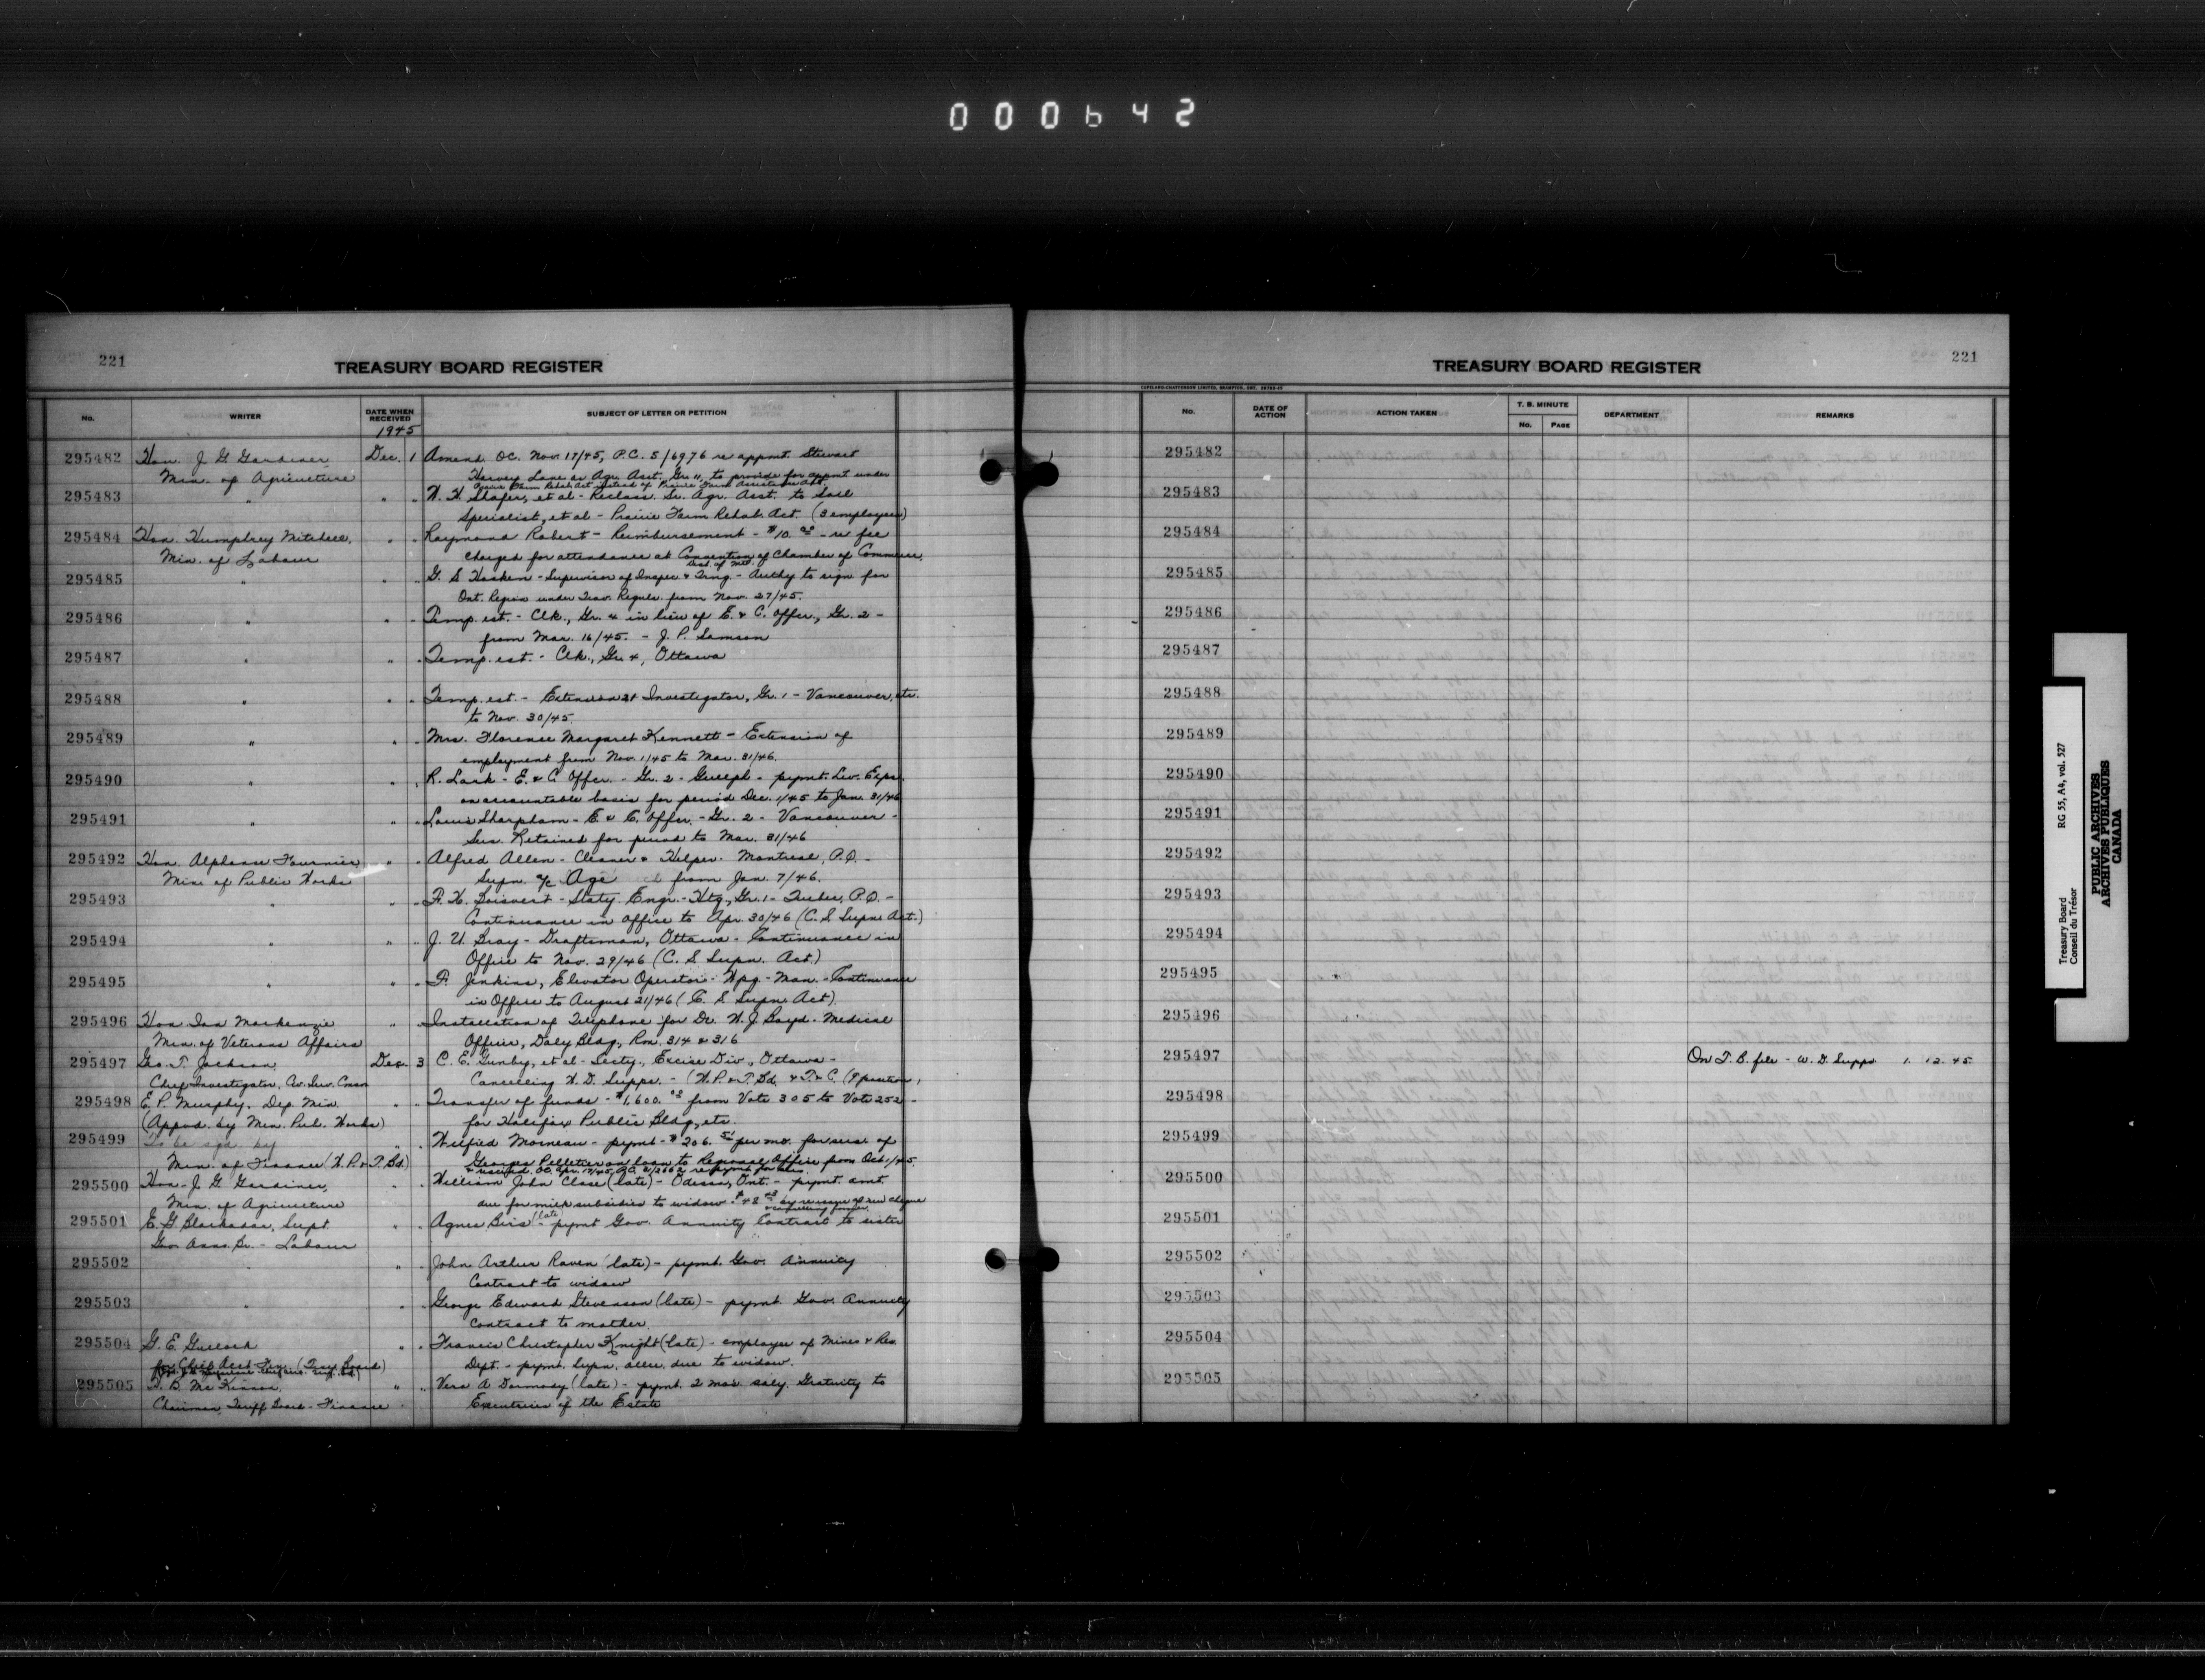 000642
221
TREASURY BOARD REGISTER
No. WRITER DATE WHEN RECEIVED SUBJECT OF LETTER OR PETITION
1945
295482 Hon. J. G. Gardiner Dec. 1 Amend. OC. Nov. 17/45, P.C. 5/6976 re appmt. Stewart
Min. of Agriculture Harvey Lane as Agr. Asst. Gr. 11, to provide for appmt under
Prairie Farm Rehab. Act instead of Prairie Farm Assistance Act.
295483 " " " W. H. Shafer, et al - Reclass. Sr. Agr. Asst. to Soil
Specialist, et al - Prairie Farm Rehab. Act. (3 employees)
295484 Hon. Humphrey Mitchell, " " Raymond Robert - Reimbursement - $10.00 - re fee
Min. of Labour charged for attendance at Convention of Chamber of Commerce,
Dist. of Mtl.
295485 " " " G. S. Hosken - Supervisor of Inspec. & Trng - Authy to sign for
Ont. Region under Trav. Reguls. from Nov. 27/45.
295486 " " " Temp. est. - Clk., Gr. 4 in lieu of E. & C. Offcr., Gr. 2 -
from Mar. 16/45. - J. P. Samson
295487 " " " Temp. est. - Clk., Gr. 4, Ottawa
295488 " " " Temp. est. - Extension 21 Investigator, Gr. 1 - Vancouver, etc.
to Nov. 30/45.
295489 " " " Mrs. Florence Margaret Kennett - Extension of
employment from Nov. 1/45 to Mar. 31/46.
295490 " " " R. Lark - E. & C. Offcr. - Gr. 2 - Guelph - pymt. Liv. Exps.
on accountable basis for period Dec. 1/45 to Jan. 31/46
295491 " " " Louis Sharpham - E. & C. Offcr. - Gr. 2 - Vancouver -
Ser. Retained for period to Mar. 31/46
295492 Hon. Alphonse Fournier " " Alfred Allen - Cleaner & Helper - Montreal, P.Q. -
Min. of Public Works Supn. a/c Age from Jan. 7/46.
295493 " " " F. H. Boisvert - Staty. Engr. - Htg, Gr. 1 - Quebec, P.Q. -
Continuance in office to Apr. 30/46 (C. S. Supn. Act.)
295494 " " " J. U. Bray - Draftsman, Ottawa - Continuance in
Office to Nov. 29/46 (C. S. Supn. Act.)
295495 " " " F. Jenkins, Elevator Operator - Wpg. - Man. - Continuance
in Office to August 21/46 (C. S. Supn. Act).
295496 Hon. Ian Mackenzie " " Installation of Telephone for Dr. W. J. Boyd - Medical
Min. of Veterans Affairs Officer, Daly Bldg., Rm. 314 & 316
295497 Geo. T. Jackson, Dec. 3 C. E. Gunby, et al - Secty., Excise Div., Ottawa -
Chief Investigator, Civ. Serv. Comm Cancelling W. D. Supps. - (W. P. & T. Bd. & T. & C. (9 position,
295498 E. P. Murphy, Dep. Min. " " Transfer of funds - $1,600.00 from Vote 305 to Vote 252 -
(Appvd. by Min. Pub. Works) for Halifax Public Bldg., etc.
295499 To be sgd. by " Wilfrid Morneau - pymt - $206. per mo. for serv. of
Min. of Finance (W.P. & T. Bd.) Georges Pelletier on loan to Regional Office from Oct. 1/45,
295500 Hon. J. G. Gardiner, " William John Close (late) - Odessa, Ont. - pymt. amt
Min. of Agriculture due for milk subsidies to widow - $48 by re-issue of new cheque
295501 E. G. Blackadar, Supt. " " Agnes Birs (late) - pymt Gov. Annuity Contract to sister
Gov. Anns. Br. - Labour
295502 " " " John Arthur Raven (late) - pymt. Gov. Annuity
Contract to widow
295503 " " " George Edward Stevenson (late) - pymt. Gov. Annuity
Contract to mother.
295504 G. E. Gullock " " Francis Christopher Knight (late) - employee of Mines & Res.
Dept. - pymt. Supn. allce. due to widow.
295505 H. B. McKinnon, " " Vera A. Dormody (late) - pymt. 2 mos. saly. Gratuity to
Chairman, Tariff Board - Finance Executrices of the Estate
TREASURY BOARD REGISTER
221
COPELAND-CHATTERSON LIMITED, BRAMPTON, ONT.
No. DATE OF ACTION ACTION TAKEN T. B. MINUTE No. PAGE DEPARTMENT REMARKS
295482
295483
295484
295485
295486
295487
295488
295489
295490
295491
295492
295493
295494
295495
295496
295497 On T. B. file - W. D. Supps 1. 12. 45
295498
295499
295500
295501
295502
295503
295504
295505
Treasury Board RG 55, A4, vol. 527
Conseil du Trésor
PUBLIC ARCHIVES
ARCHIVES PUBLIQUES
CANADA